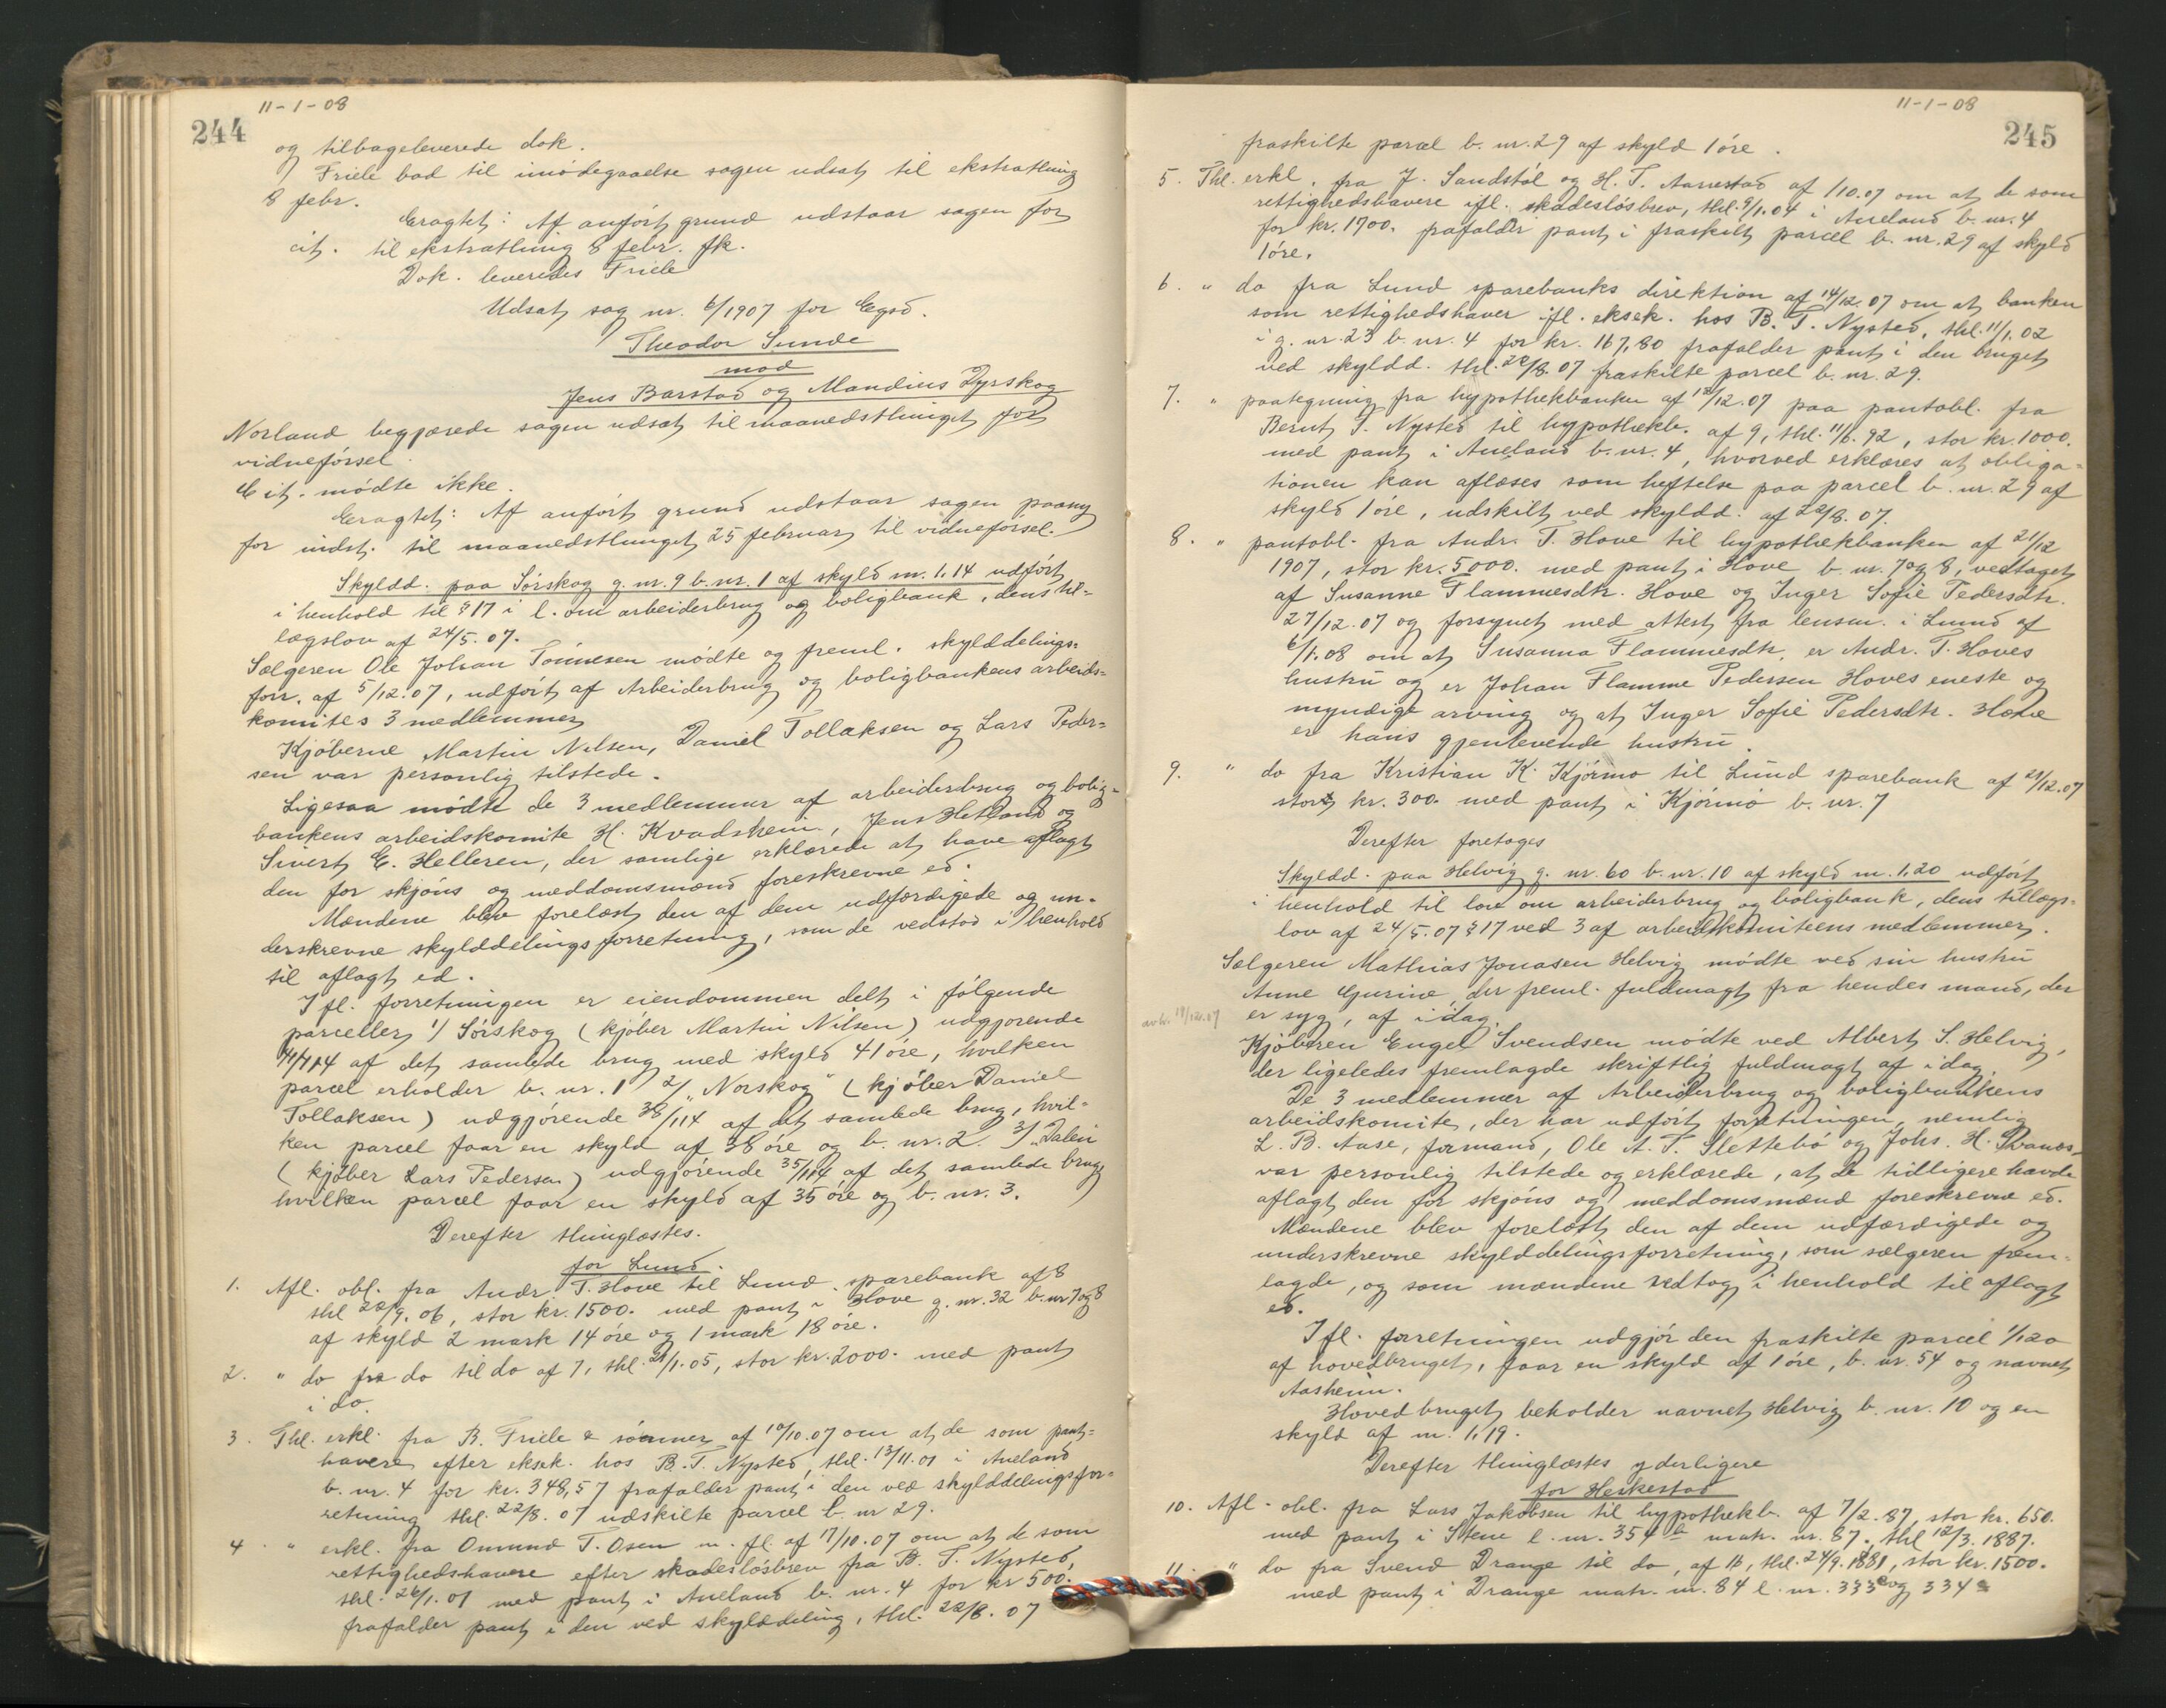 11-1-08
244
og tilbageleverede dok.
Friele bad til imødegaaelse sagen udsat til ekstratling
8 febr.
Eragtet: Af anført grund udstaar sagen for
cit. til ekstratling 8 febr. fk.
Dok. leveredes Friele
Udsat sag nr. 6/1907 for Egsd.
Theodor Sunde
mod
Jens Barstad og Mandius Dyrskog
Norland begjærede sagen udsat til maanedsthinget for
vidneførsel.
Cit. mødte ikke.
Eragtet: Af anført grund udstaar sagen paany
for indst. til maanedsthinget 25 februar til vidneførsel.
Skyldd. paa Sørskog g. nr. 9 b. nr. 1 af skyld m. 1.14 udført
i henhold til § 17 i l. om arbeiderbrug og boligbank, dens til-
lægslov af 24/5. 07.
Sælgeren Ole Johan Tønnesen mødte og freml. skylddelings-
forr. af 5/12.07, udført af Arbeiderbrug og boligbankens arbeids-
komites 3 medlemmer
Kjøberne Martin Nilsen, Daniel Tollaksen og Lars Peder-
sen var personlig tilstede.
Ligesaa mødte de 3 medlemmer af arbeiderbrug og bolig-
bankens arbeidskomite H. Kvadsheim, Jens Hetland og
Sivert E. Helleren, der samlige erklærede at have aflagt
den for skjøns og meddomsmænd foreskrevne ed.
Mændene blev forelæst den af dem udfærdigede og un-
derskrevne skylddelingsforretning, som de vedstod i henhold
til aflagt ed.
Ifl. forretningen er eiendommen delt i følgende
parceller 1/ Sørskog (kjøber Martin Nilsen) udgjørende
41/114 af det samlede brug med skyld 41 øre, hvilken
parcel erholder b. nr. 1 2/ "Norskog" (kjøber Daniel
Tollaksen) udgjørende 38/114 af det samlede brug, hvil-
ken parcel faar en skyld af 38 øre og b. nr. 2. 3/ "Dalen
(kjøber Lars Pedersen) udgjørende 35/114 af det samlede brug
hvilken parcel faar en skyld af 35 øre og b. nr. 3.
Derefter thinglæstes.
for Lund.
1. Afl. obl. fra Andr. T. Hove til Lund sparebank af 8
thl 22/9. 06, stor kr. 1500. med pant i Hove g. nr. 32 b. nr 7 og 8
af skyld 2 mark 14 øre og 1 mark 18 øre.
2. " do fra do til do af 7, thl. 21/1.05, stor kr. 2000. med pant
i do.
3. Thl. erkl. fra B. Friele & sønner af 10/10.07 om at de som pant-
havere efter eksek. hos B. T. Nysted, thl. 13/11.01 i Aueland
b. nr. 4 for kr. 348,57 frafalder pant i den ved skylddelingsfor-
retning thl. 22/8. 07 udskilte parcel b. nr 29.
4. " erkl. fra Omund T. Osen m. fl. af 17/10.07 om at de som
rettighedshavere efter skadesløsbrev fra B. T. Nysted,
thl. 26/1.01 med pant i Aueland b. nr. 4 for kr 500.
frafalder pant i den ved skylddeling, thl. 22/8. 07
11-1-08
245
fraskilte parcel b. nr. 29 af skyld 1 øre.
5. Thl. erkl. fra J. Sandstøl og H. T. Aarrestad af 1/10.07 om at de som
rettighedshavere ifl. skadesløsbrev, thl. 9/1.04 i Aueland b. nr. 4
for kr. 1700. frafalder pant i fraskilt parcel b. nr. 29 af skyld
1 øre.
6. " do fra Lund sparebanks direktion af 14/12.07 om at banken
som rettighedshaver ifl. eksek. hos B. T. Nysted, thl. 11/1.02
i g. nr. 23 b. nr. 4 for kr. 167,80 frafalder pant i den bruget
ved skyldd. thl. 22/8.07 fraskilte parcel b. nr. 29.
7. " paategning fra hypothekbanken af 12/12.07 paa pantobl. fra
Bernt T. Nysted til hypothekb. af 9, thl. 11/6.92, stor kr. 1000.
med pant i Aueland b. nr. 4, hvorved erklæres at obliga-
tionen kan aflæses som heftelse paa parcel b. nr. 29 af
skyld 1 øre, udskilt ved skyldd. af 22/8. 07.
8. " pantobl. fra Andr. T. Hove til hypothekbanken af 21/12
1907, stor kr. 5000. med pant i Hove b. nr. 7 og 8, vedtaget
af Susanne Flammesdtr. Hove og Inger Sofie Pedersdtr.
27/12.07 og forsynet med attest fra lensm. i Lund af
6/1.08 om at Susanna Flammesdtr. er Andr. T. Hoves
hustru og er Johan Flamme Pedersen Hoves eneste og
myndige arving og at Inger Sofie Pedersdtr. Hove
er hans gjenlevende hustru.
9. " do fra Kristian K. Kjørmo til Lund sparebank af 21/12.07
stor kr. 300. med pant i Kjørmo b. nr. 7
Derefter foretoges
Skyldd. paa Helvig g. nr. 60 b. nr. 10 af skyld m. 1,20 udført
i henhold til lov om arbeiderbrug og boligbank, dens tillægs-
lov af 24/5.07 § 17 ved 3 af arbeidskomiteens medlemmer.
Sælgeren Mathias Jonasen Helvig mødte ved sin hustru
Anne Gurine, der freml. fuldmagt fra hendes mand, der
er syg, af idag.
Kjøberen Engel Svendsen mødte ved Albert S. Helvig,
der ligeledes fremlagde skriftlig fuldmagt af idag.
De 3 medlemmer af Arbeiderbrug og boligbankens
arbeidskomite, der har udført forretningen, nemlig
L. B. Aase, formand, Ole A. T. Slettebø og Johs. H. Svanes,
var personlig tilstede og erklærede, at de tidligere havde
aflagt den for skjøns og meddomsmænd foreskrevne ed.
Mændene blev forelæst den af dem udfærdigede og
underskrevne skylddelingsforretning, som sælgeren frem-
lagde, og som mændene vedtog i henhold til aflagt
ed.
Ifl. forretningen udgjør den fraskilte parcel 1/120
af hovedbruget, faar en skyld af 1 øre, b. nr. 54 og navnet
Aasheim.
Hovedbruget beholder navnet Helvig b. nr. 10 og en
skyld af m. 1,19.
Derefter thinglæstes yderligere
for Heskestad
10. Afl. obl. fra Lars Jakobsen til hypothekb. af 7/2.87, stor kr. 650.
med pant i Stene l. nr. 354 b matr. nr. 87, thl 12/3.1887.
11. " do fra Svend Drange til do, af 16, thl. 24/9.1881, stor kr. 1500.
med pant i Drange matr. nr. 84 l. nr. 333 e og 334 a